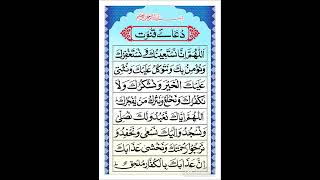 دعائے قنوت
اَللّٰهُمَّ اِنَّا نَسْتَعِيْنُكَ وَنَسْتَغْفِرُكَ
وَنُؤْمِنُ بِكَ وَنَتَوَكَّلُ عَلَيْكَ وَنُثْنِیْ
عَلَيْكَ الْخَيْرَ وَنَشْكُرُكَ وَلَا
نَكْفُرُكَ وَنَخْلَعُ وَنَتْرُكُ مَنْ يَّفْجُرُكَ
اَللّٰهُمَّ اِيَّاكَ نَعْبُدُ وَلَكَ نُصَلِّیْ
وَنَسْجُدُ وَاِلَيْكَ نَسْعٰی وَنَحْفِدُ وَ
نَرْجُوْا رَحْمَتَكَ وَنَخْشٰی عَذَابَكَ
اِنَّ عَذَابَكَ بِالْكُفَّارِ مُلْحِقٌ